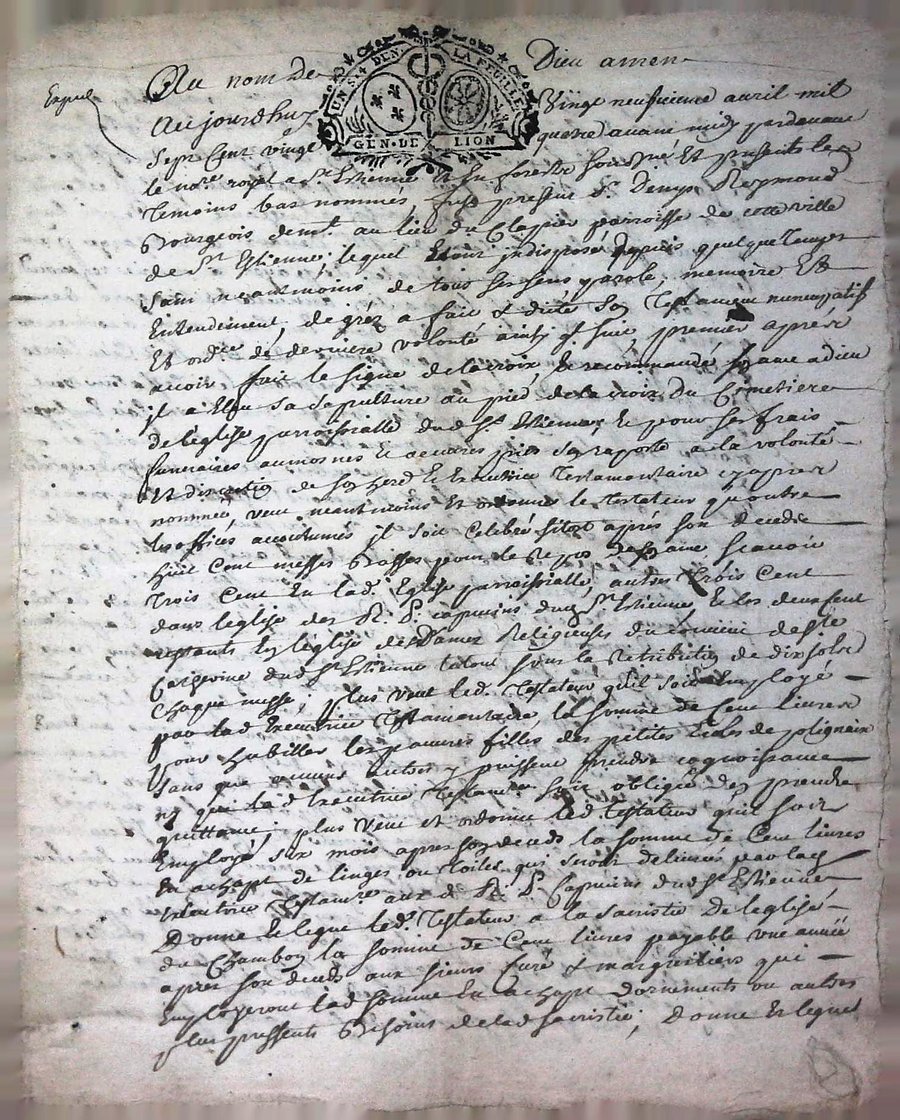 Au nom de Dieu amen
UN SOL 4 DEN. LA FEUILLE
GÉN. DE LION
Expié
Aujourdhuy Vingt neufvieme avril mil
Sept Cent vingt quatre avant midy pardevant
le nore. royal a St. Estienne en forestz soussigné Et presents les
Temoins bas nommés, fust present Sr. Denys Reymond
Bourgeois demt. au lieu du Clapier parroisse de cette ville
de St. Estienne, lequel Estant jndisposé depuis quelque temps
sain neantmoins de tous ses sens, parole, memoire Et
Entendement, de gréz a fait & dicté son Testament nuncupatif
Et ordre. de derniere volonté ainsy q. suit, premier aprés
avoir fait le signe de la croix, & recommandé son ame a dieu
jl a Eleu sa sepulture au pied de la croix du Cimetiere
de l'église parroissialle dud. St. Estienne, Et pour ses frais
funeraires aumosnes & oeuvres pies s'en raporte a la volonté
Et discretion de son herd. & Executrice Testamentaire cy apres
nommée, veut neantmoins Et ordonne le testateur qu'outre
les offices accoutumés jl soit Celebré sitost aprés son decedz
huit Cent messes Basses pour le Repos de son ame scavoir
Trois Cent En lad. Eglise parroissialle, autres Trois Cent
dans leglise des R. P. capucins dud. St. Estienne, & les deux Cent
restants En leglise des Dames Religieuses du couvent de Ste
Catherine dud. St. Estienne le tout sous la retribution de dix sols
chaque messe, plus veut led. Testateur qu'il soit Employé
par lad. Executrice Testamentaire la somme de Cent livres
pour habiller les pauvres filles des petites Ecoles de polignais
sans que aucuns autres y puissent prendre cognoissance
ny que lad. Executrice Testamre. soit obligée d'en prendre
quittance; plus veut et ordonne led. Testateur qu'il soit
Employé six mois apres son deceds la somme de Cent livres
En achapt de linges ou toiles qui seront delivrés par lad.
Executrice Testamre. aux d. R. P. Capucins dud. St. Estienne
Donne & legue led. Testateur a la sacristie De leglise
du Chambon la somme de Cent livres payable une année
apres son deceds aux sieurs Curé & marguilliers qui
Employeront lad. somme En achapt d'ornements ou autres
plus pressents Besoins de lad. sacristie; Donne Et legue